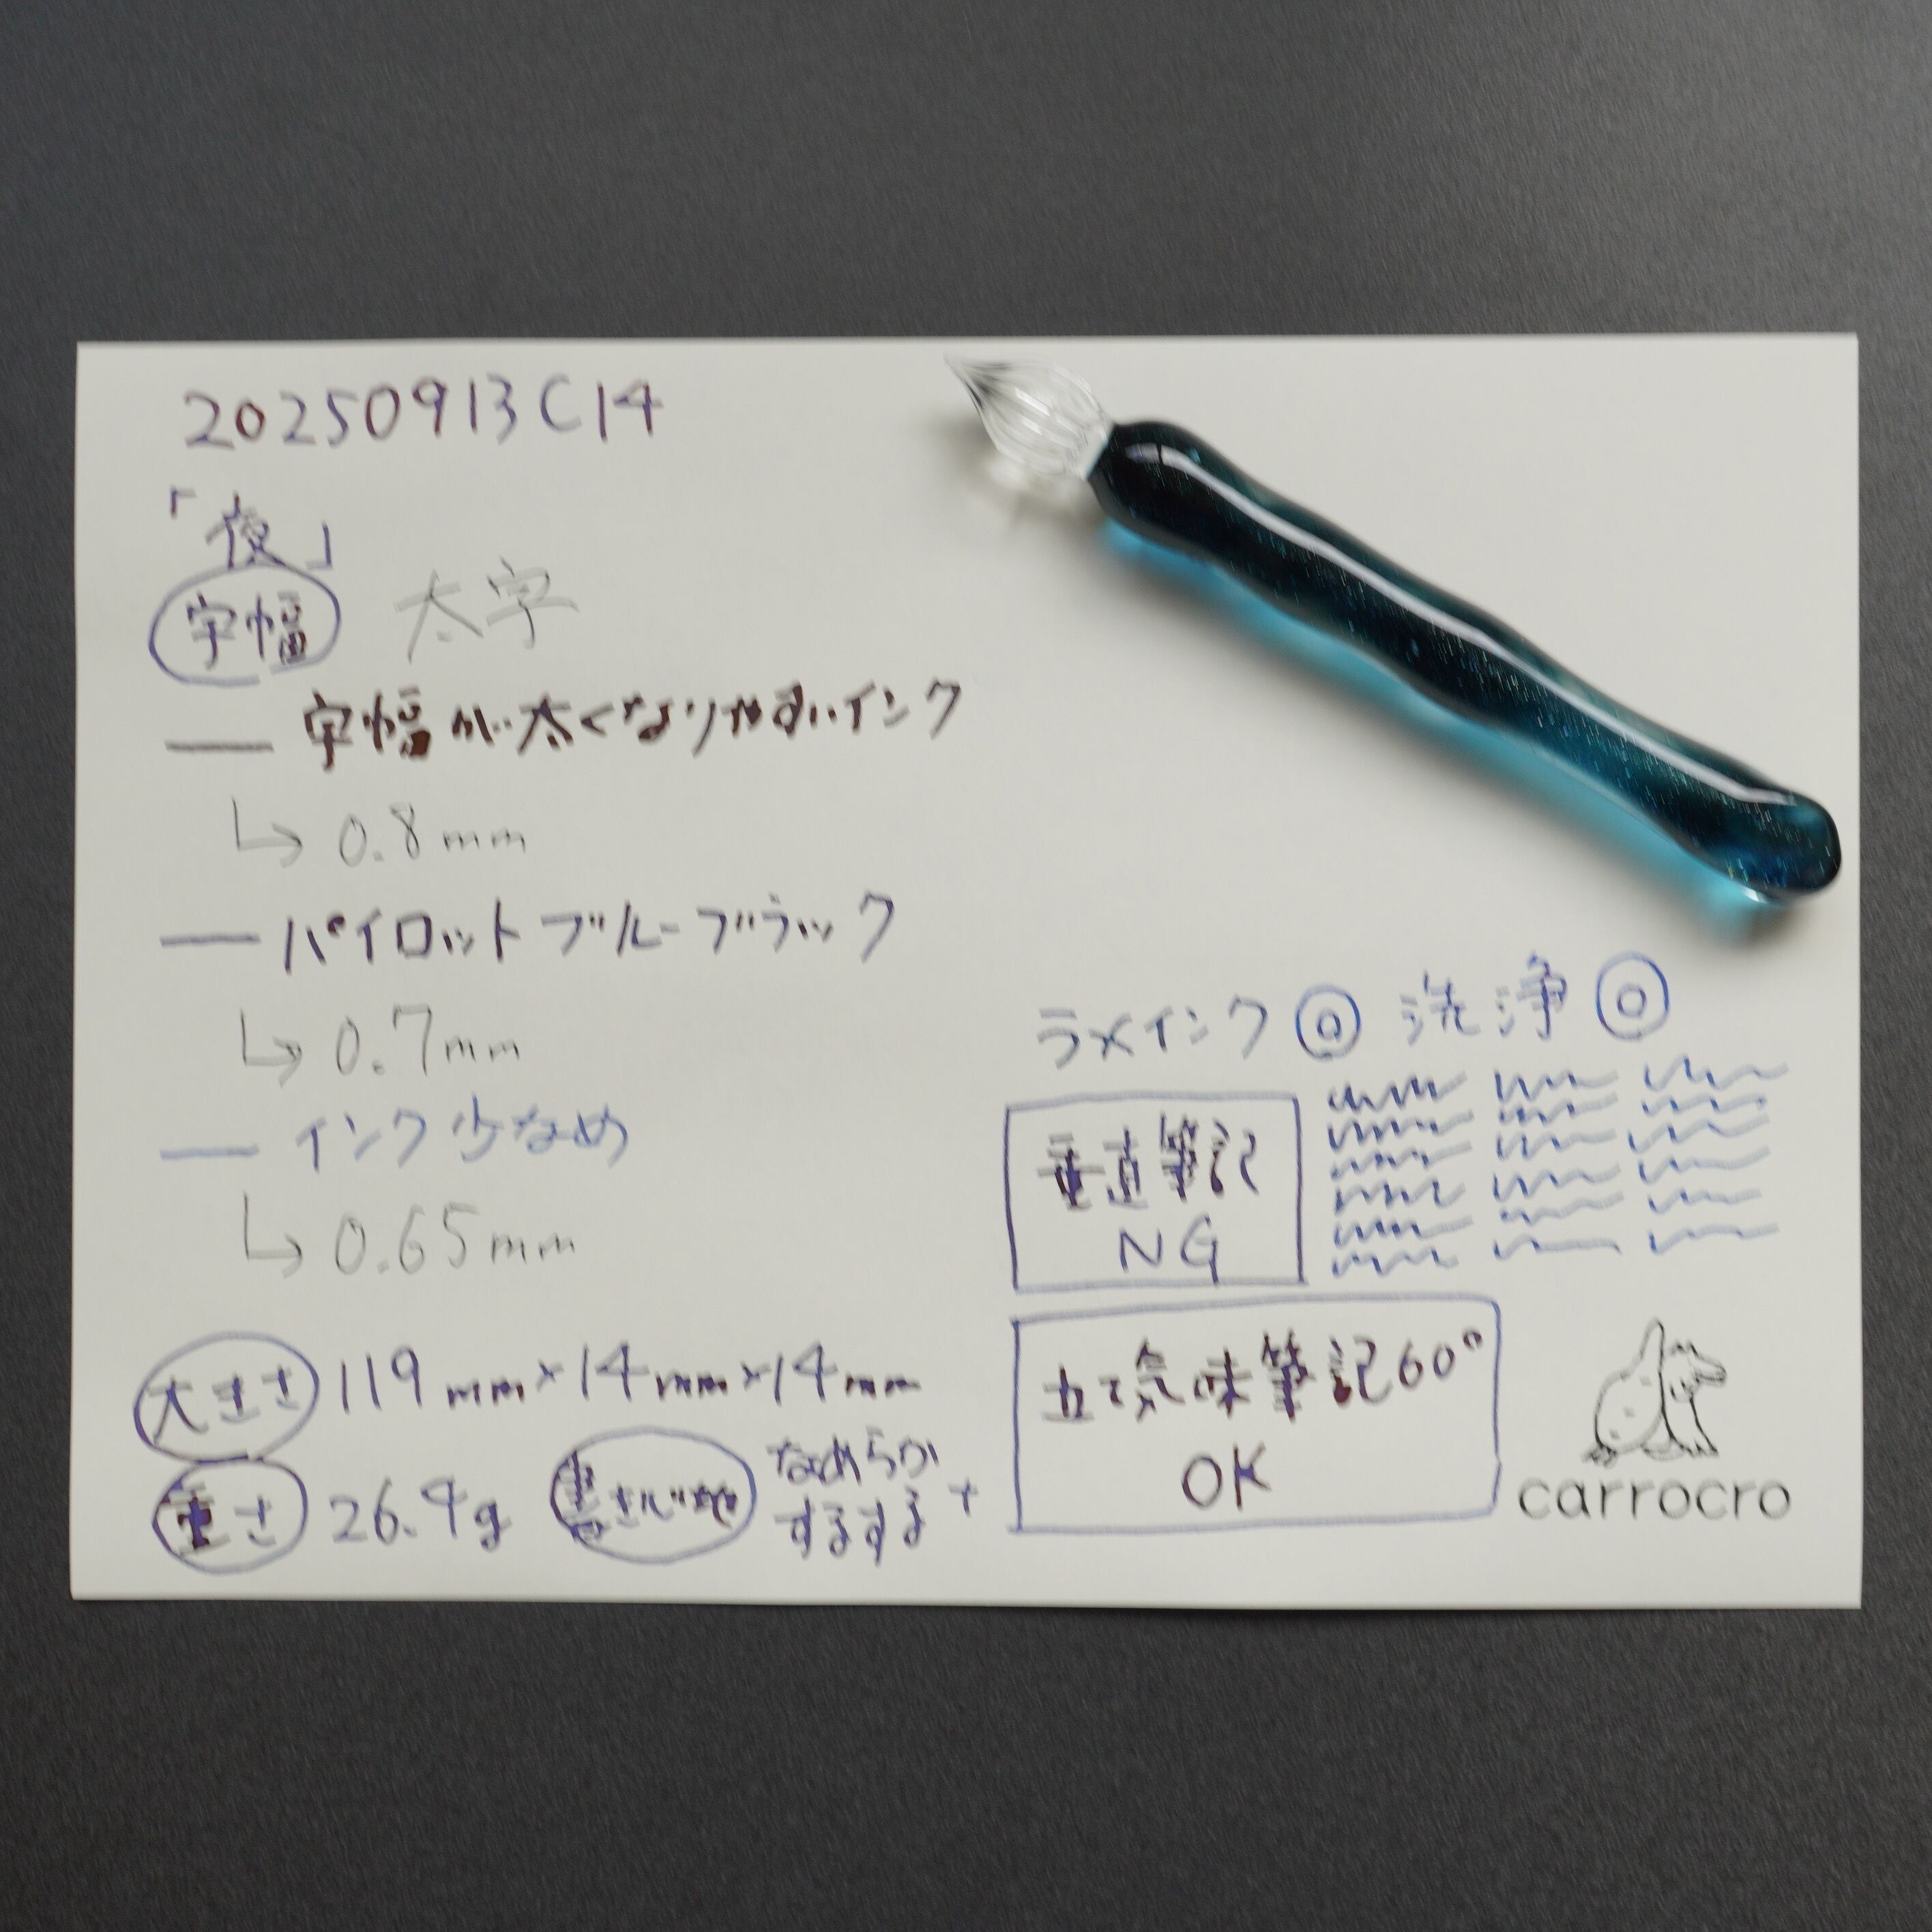 20250913C14
「夜」
字幅 太字
― 字幅が太くなりやすいインク
↳ 0.8mm
― パイロットブルーブラック
↳ 0.7mm
― インク少なめ
↳ 0.65mm
大きさ 119mm×14mm×14mm
重さ 26.4g 書き心地 なめらか
するする +
ラメインク ◎ 洗浄 ◎
垂直筆記
NG
立て気味筆記60°
OK
carrocro